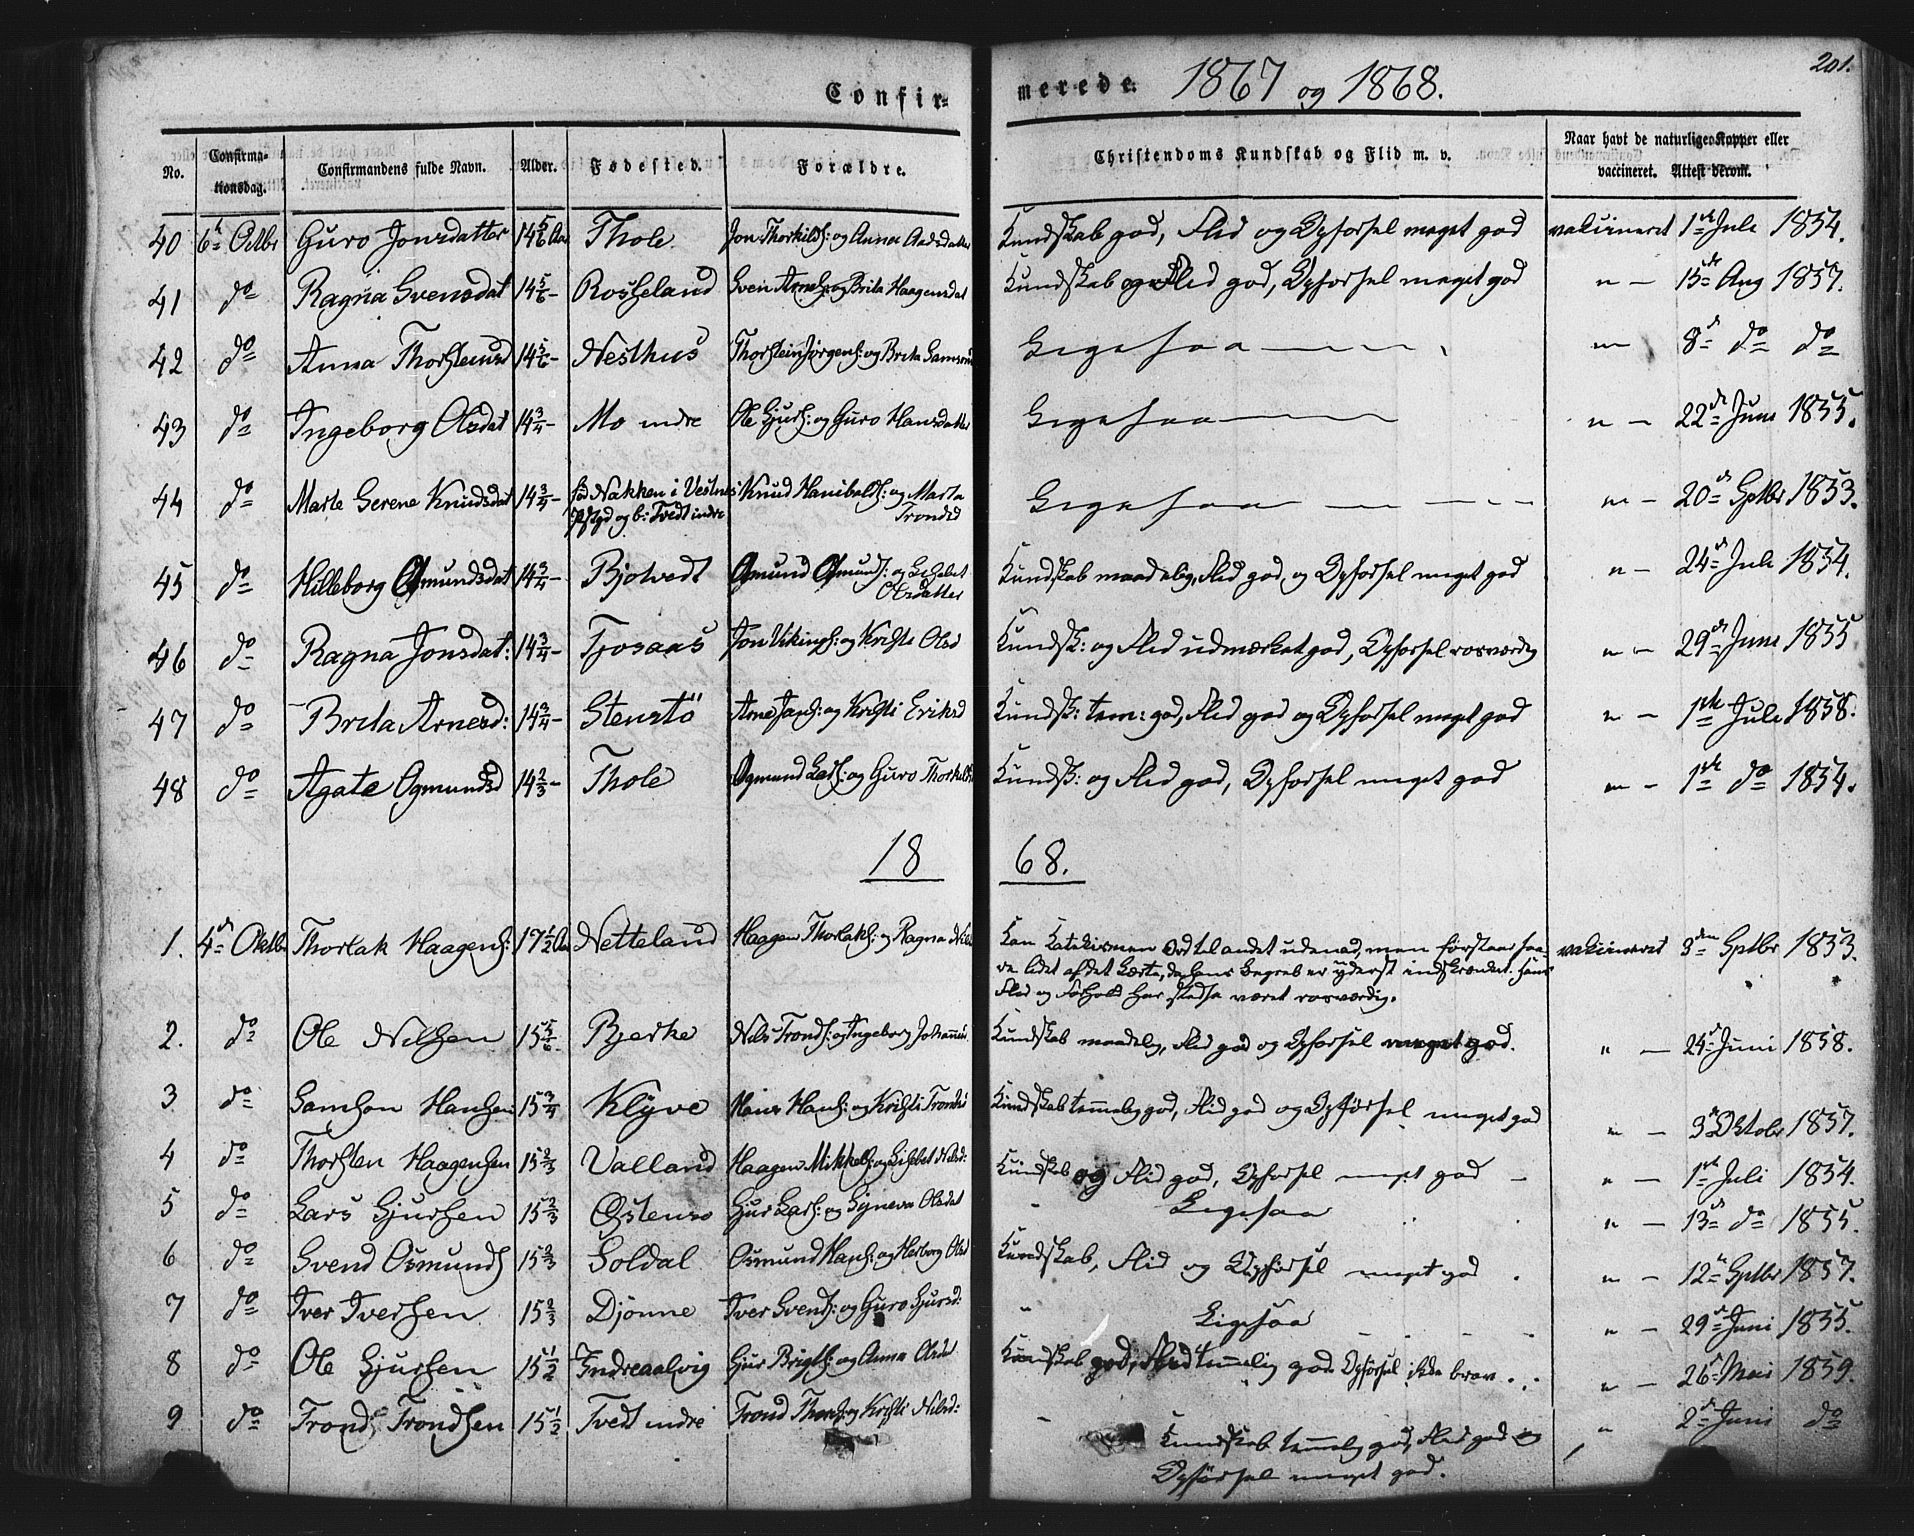 201.
Confir= merede. 1867 og 1868.
No. Confirma-tionsdag. Confirmandens fulde Navn. Alder. Fødested. Forældre. Christendoms Kundskab og Flid m. v. Naar havt de naturlige Kopper eller vaccineret. Attest derom.
40 6te Octbr Guro Jonsdatter 14 5/6 Aar Thole Jon Thorkilds: og Anna Aadsdatter Kundskab god, Flid og Opførsel meget god vakcineret 1ste Juli 1854.
41 do Ragna Svensdat 14 5/6 - Rosseland Sven Arnes: og Brita Haagensdat Kundskab og Flid god, Opførsel meget god " - 15de Aug 1857.
42 do Anna Thorsteinsd 14 5/6 - Nesthus Thorstein Jørgens: og Brita Samsons Ligesaa " - 8de do do
43 do Ingeborg Olsdat 14 3/4 - Mo indre Ole Gjurs: og Guro Hansdatter Ligesaa " - 22de Juni 1855.
44 do Marte Serene Knudsdat 14 3/4 - fød Nakken i Vestnes Pstgd og b: Tvedt indre Knud Hanibals: og Marta Trondsd Ligesaa " - 20de Septbr 1853.
45 do Hilleborg Omundsdat 14 3/4 - Bjotvedt Omund Omunds: og Lisabet Olsdatter Kundskab maadelig, Flid god, og Opførsel meget god " - 24de Juli 1854.
46 do Ragna Jonsdat: 14 3/4 - Tjosaas Jon Vikings: og Kristi Olsd Kundsk: og Flid udmærket god, Opførsel rosværdig " - 29de Juni 1855
47 do Brita Arnesd: 14 3/4 - Stenstö Arne Jans: og Kristi Eriksd Kundsk: tem: god, Flid god og Opførsel meget god " - 1ste Juli 1858.
48 do Agate Ogmundsd 14 2/3 - Thole Ogmund Lars: og Guro Thorkilds Kundsk: og Flid god, Opførsel meget god " - 1ste do 1854.
18 68.
1. 4de Oktbr Thorlak Haagens: 17 1/2 Aar Netteland Haagen Thorlaks: og Ragna Nils Kan Katekismen Ord til andet udenad, men forstaar saa-
re lidet af det Lærte, da hans Begreb er yderst indskrænket. Hans
Flid og Forhold har stedse været rosværdig. vakcineret 3den Septbr 1853.
2. do Ole Nilssen 15 5/6 Bjerke Nils Tronds: og Ingeborg Johannes Kundskab maadelig, Flid god og Opførsel meget god. " - 24de Juni 1858.
3 do Samson Hanssen 15 3/4 Klyve Hans Hans: og Kristi Tronds Kundskab temmelig god, Flid god og Opførsel meget god " - 3de Oktobr 1857.
4 do Thorsten Haagensen 15 2/3 Valland Haagen Mikkels: og Lisbet Nilsd: Kundskab og Flid god, Opførsel meget god " - 1ste Juli 1854.
5 do Lars Gjursen 15 2/3 Østensø Gjur Lars: og Synneva Olsdat Ligesaa " - 13de do 1855.
6 do Svend Osmunds 15 2/3 Soldal Osmund Hans: og Herborg Olsd Kundskab, Flid og Opførsel meget god. " - 12te Septbr 1857.
7 do Iver Iversen 15 2/3 Djönne Iver Svends: og Guro Gjursd: " Ligesaa " - 29de Juni 1855.
8 do Ole Gjursen 15 1/2 Indreaalvig Gjur Brigts: og Anna Olsd Kundskab god, Flid temmelig god Opførsel ikke brav. " - 26de Mai 1859.
9 do Trond Trondsen 15 1/2 Tvedt indre Trond Thors: og Kristi Nilsd: " Kundskab temmelig god, Flid god og
Opførsel meget god. " 2de Juni do